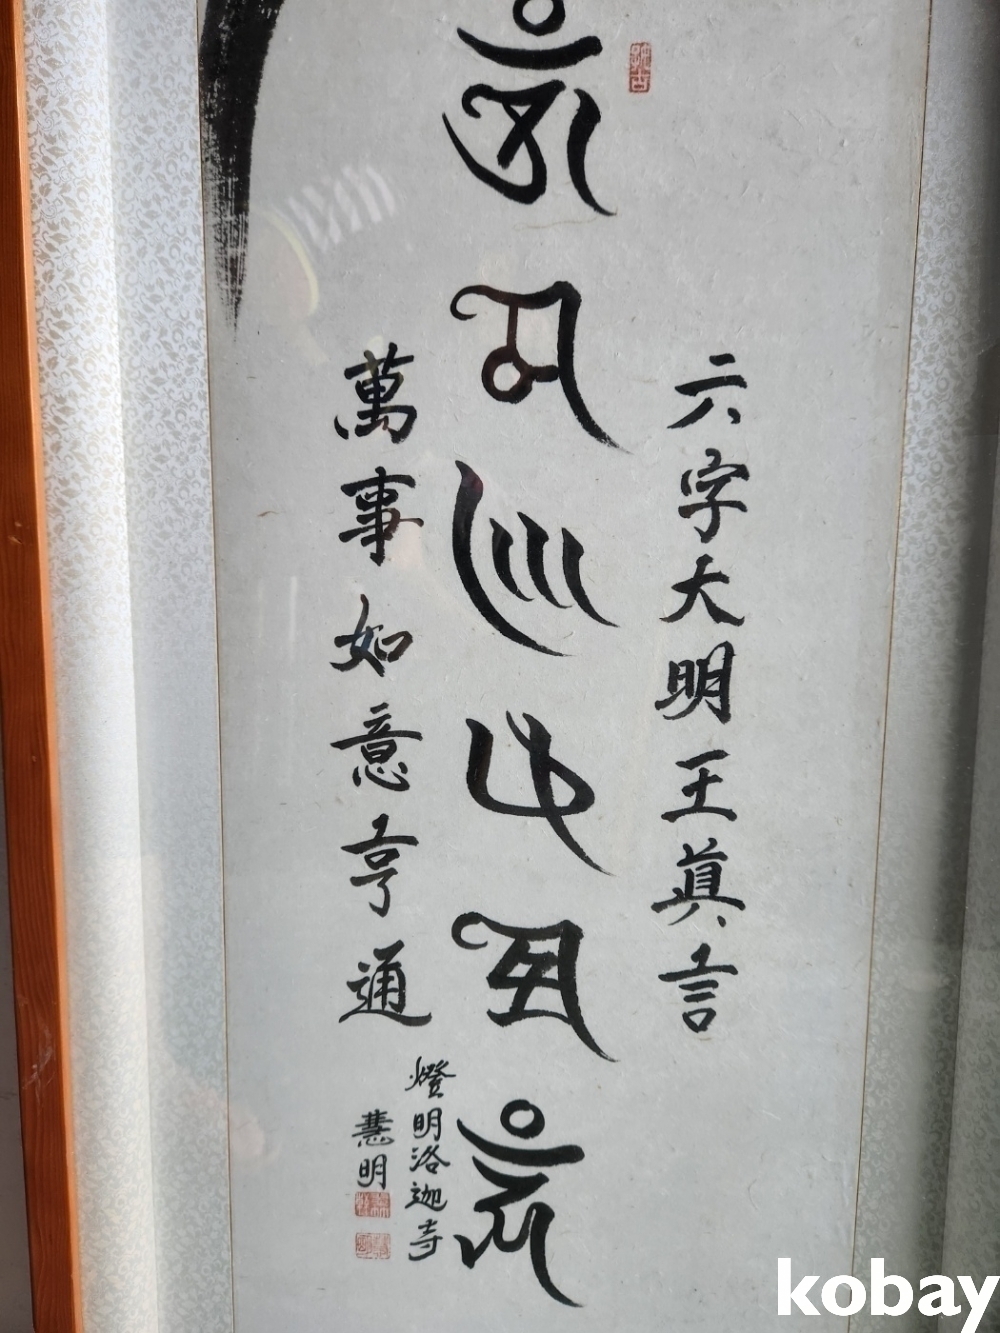 六字大明王眞言
𑖌𑖼𑖦𑖜𑖰𑖢𑖟𑖿𑖦𑖸𑖮𑖳𑖽
萬事如意亨通
燈明洛迦寺
慧明
kobay